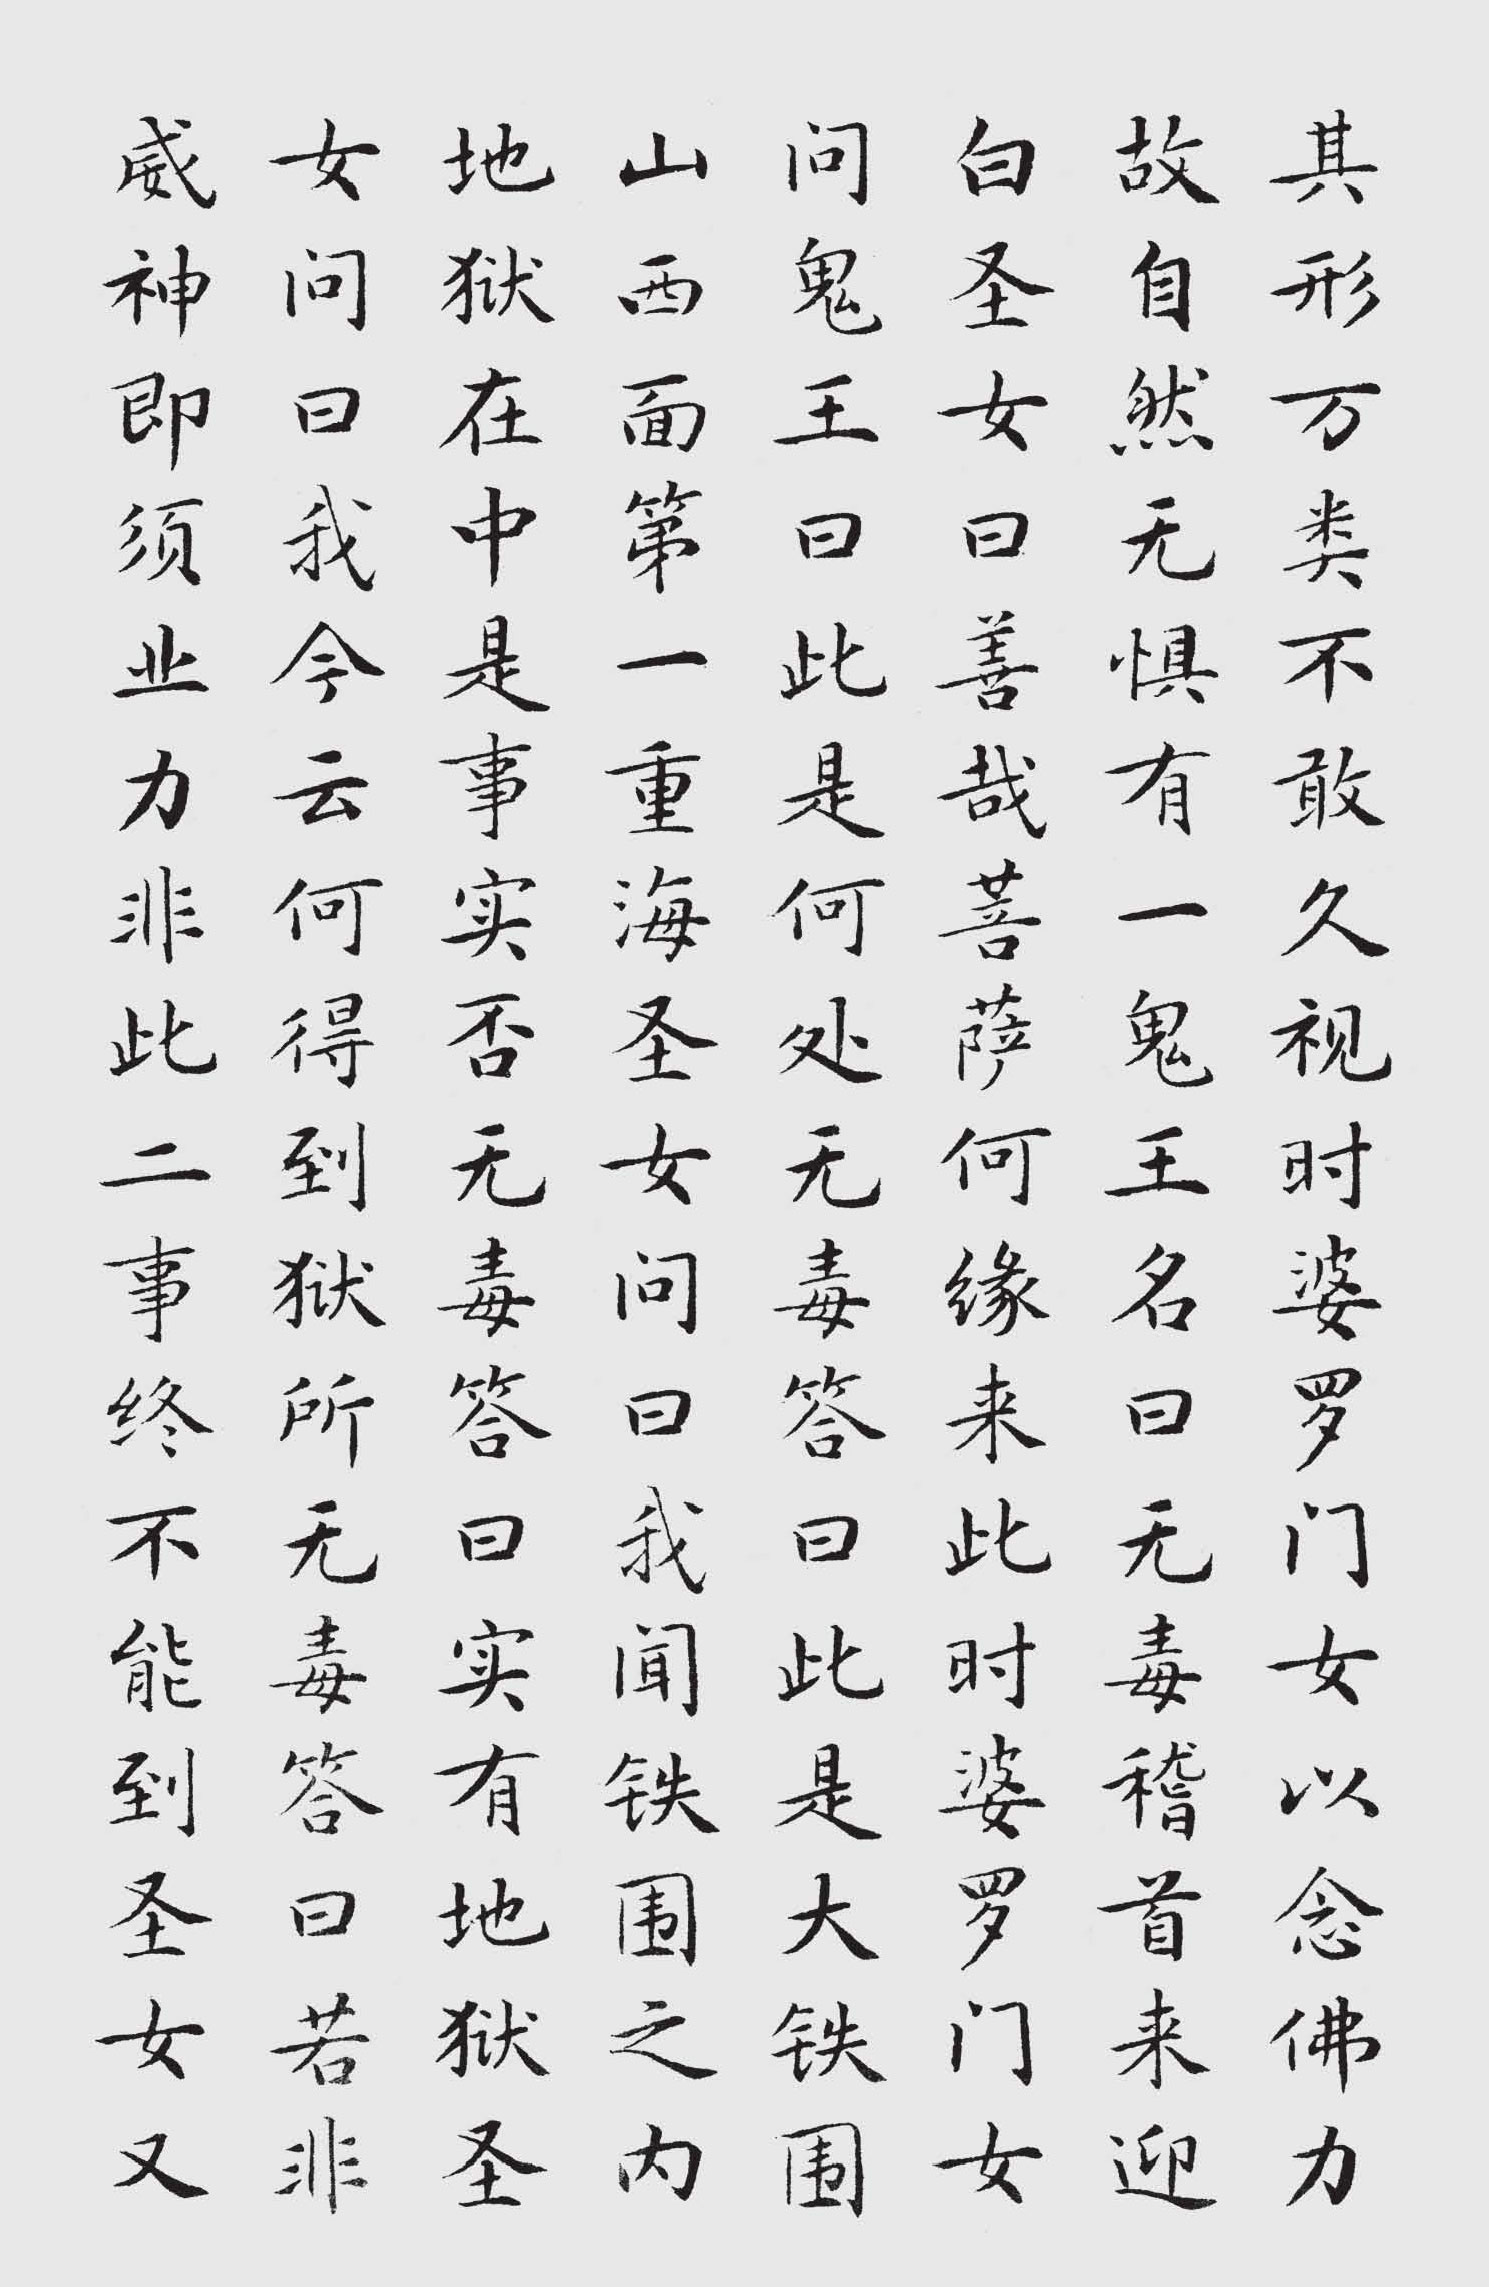 其形万类不敢久视时婆罗门女以念佛力
故自然无惧有一鬼王名曰无毒稽首来迎
白圣女曰善哉菩萨何缘来此时婆罗门女
问鬼王曰此是何处无毒答曰此是大铁围
山西面第一重海圣女问曰我闻铁围之内
地狱在中是事实否无毒答曰实有地狱圣
女问曰我今云何得到狱所无毒答曰若非
威神即须业力非此二事终不能到圣女又